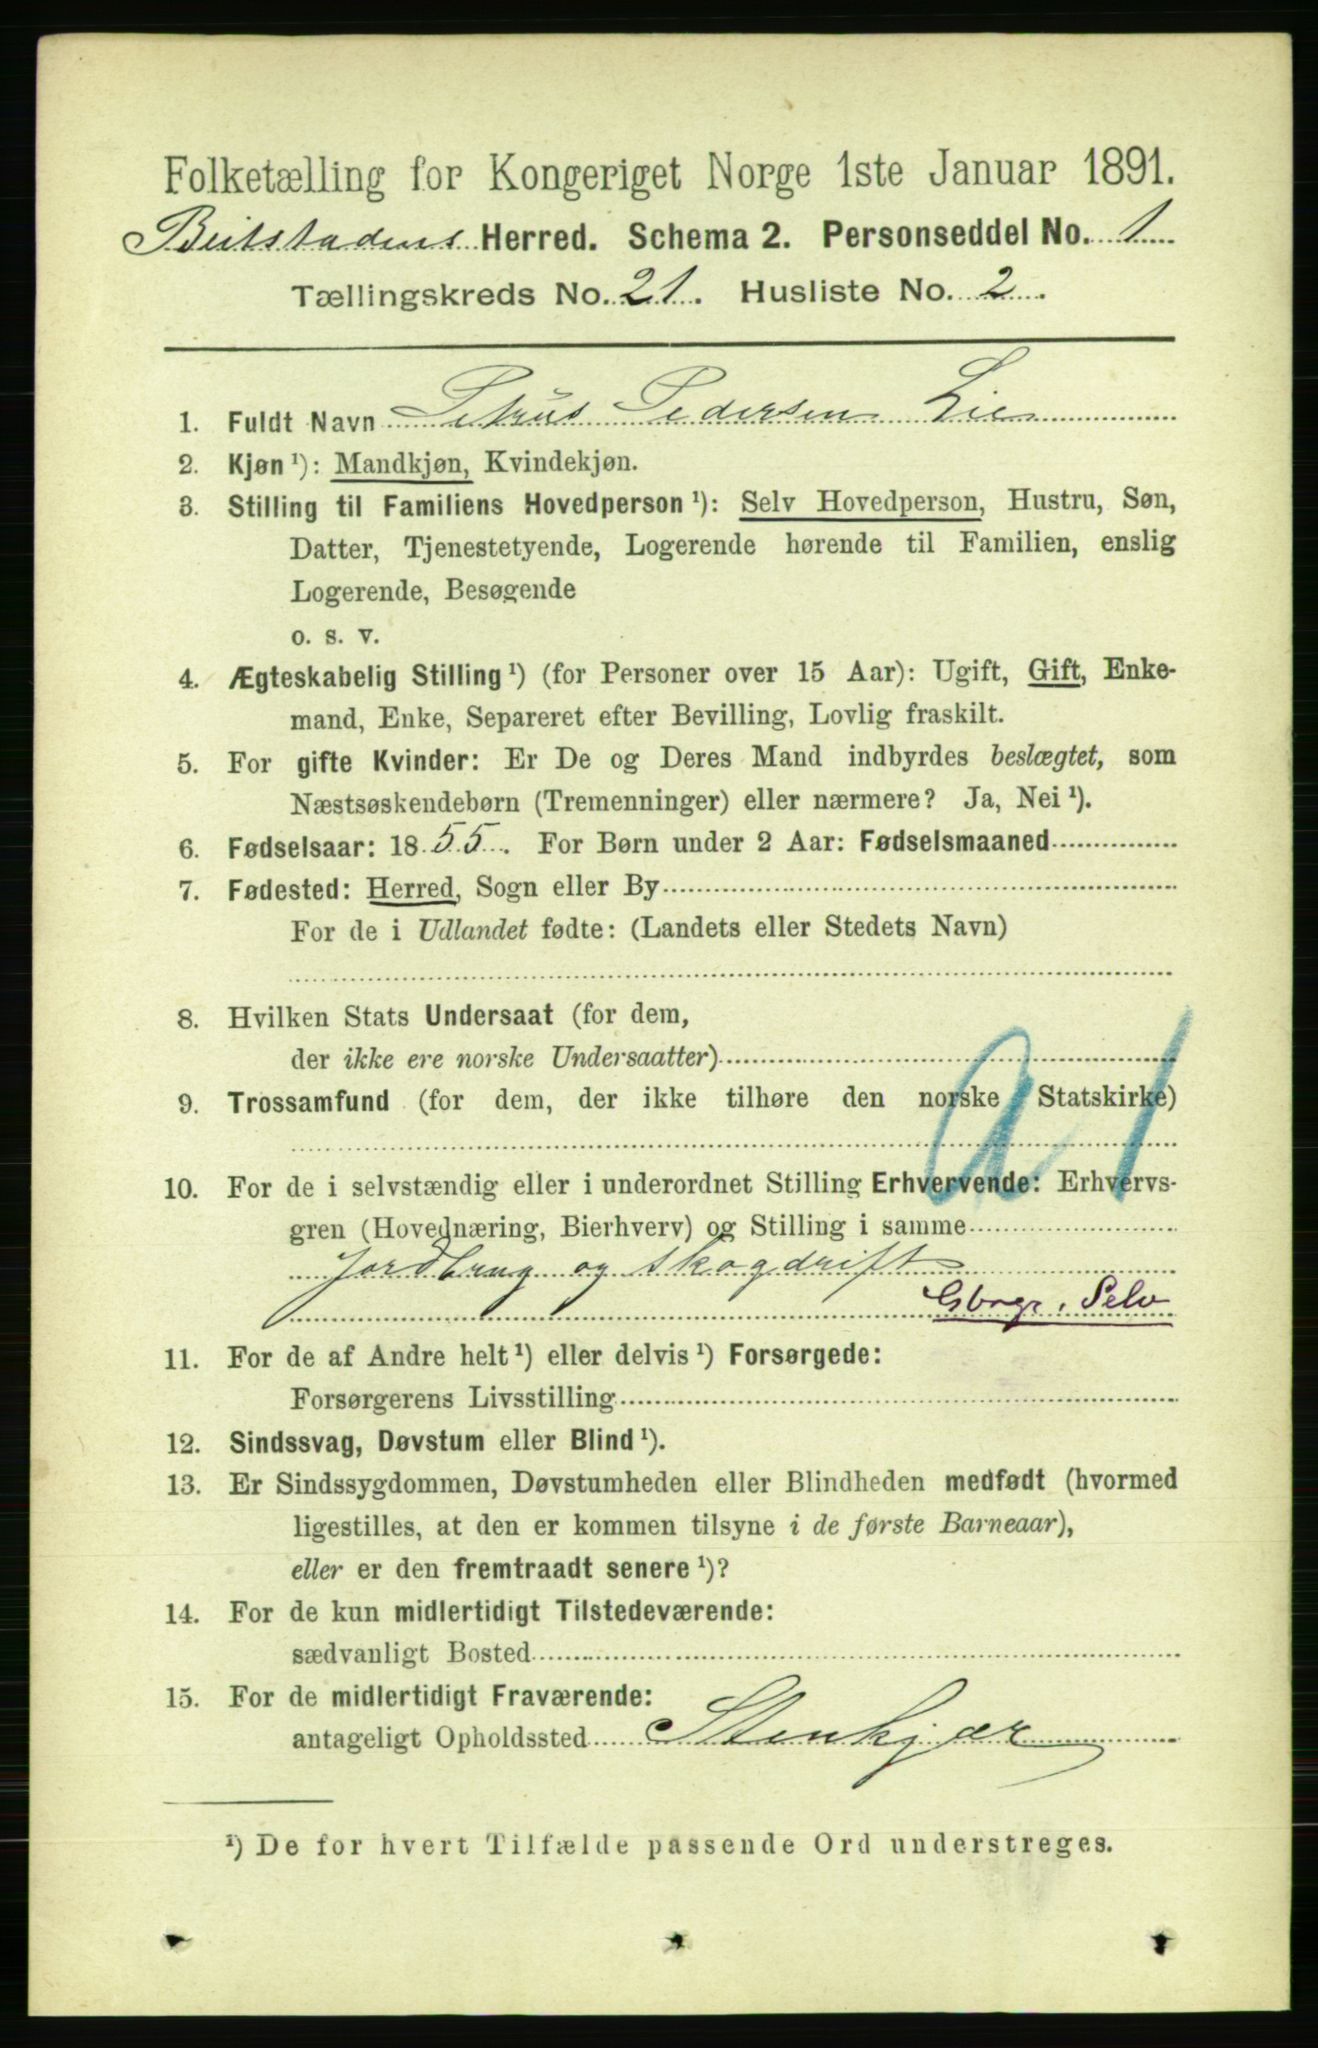 Folketælling for Kongeriget Norge 1ste Januar 1891.
Beitstadens Herred. Schema 2. Personseddel No. 1
Tællingskreds No. 21. Husliste No. 2.
1. Fuldt Navn Petrus Pedersen Lie
2. Kjøn¹): Mandkjøn, Kvindekjøn.
3. Stilling til Familiens Hovedperson¹): Selv Hovedperson, Hustru, Søn,
Datter, Tjenestetyende, Logerende hørende til Familien, enslig
Logerende, Besøgende
o. s. v.
4. Ægteskabelig Stilling¹) (for Personer over 15 Aar): Ugift, Gift, Enke-
mand, Enke, Separeret efter Bevilling, Lovlig fraskilt.
5. For gifte Kvinder: Er De og Deres Mand indbyrdes beslægtet, som
Næstsøskendebørn (Tremenninger) eller nærmere? Ja, Nei¹).
6. Fødselsaar: 1855. For Børn under 2 Aar: Fødselsmaaned
7. Fødested: Herred, Sogn eller By
For de i Udlandet fødte: (Landets eller Stedets Navn)
8. Hvilken Stats Undersaat (for dem,
der ikke ere norske Undersaatter)
9. Trossamfund (for dem, der ikke tilhøre den norske Statskirke)
a1
10. For de i selvstændig eller i underordnet Stilling Erhvervende: Erhvervs-
gren (Hovednæring, Bierhverv) og Stilling i samme
Jordbrug og skogdrift
Gbrgr. Selv
11. For de af Andre helt¹) eller delvis¹) Forsørgede:
Forsørgerens Livsstilling
12. Sindssvag, Døvstum eller Blind¹).
13. Er Sindssygdommen, Døvstumheden eller Blindheden medfødt (hvormed
ligestilles, at den er kommen tilsyne i de første Barneaar),
eller er den fremtraadt senere¹)?
14. For de kun midlertidigt Tilstedeværende:
sædvanligt Bosted
15. For de midlertidigt Fraværende:
antageligt Opholdssted Stenkjær
¹) De for hvert Tilfælde passende Ord understreges.